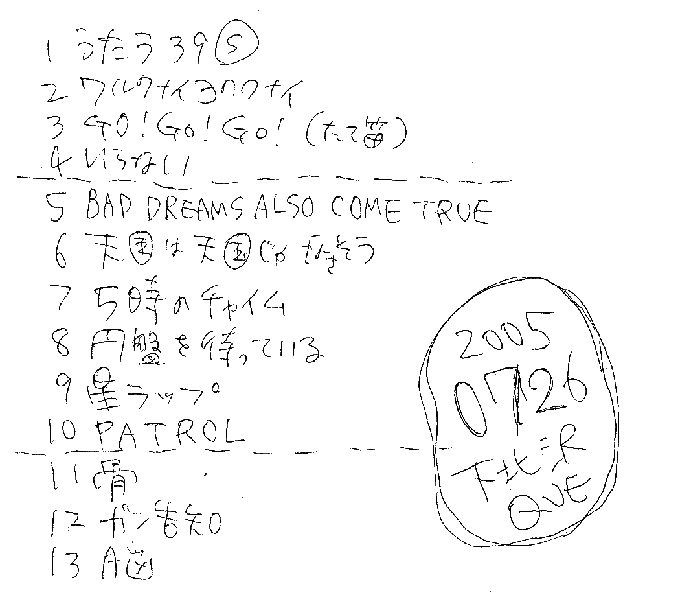 1 うたう39⑤
2 ワルクナイヨワクナイ
3 GO! Go! Go! (たて笛)
4 いらない
5 BAD DREAMS ALSO COME TRUE
6 天国は天国じゃなさそう
7 5時のチャイム
8 円盤を待っている
9 星ラップ
10 PATROL
11 骨
12 ガン告知
13 A図
2005
0726
下北=R
QUE